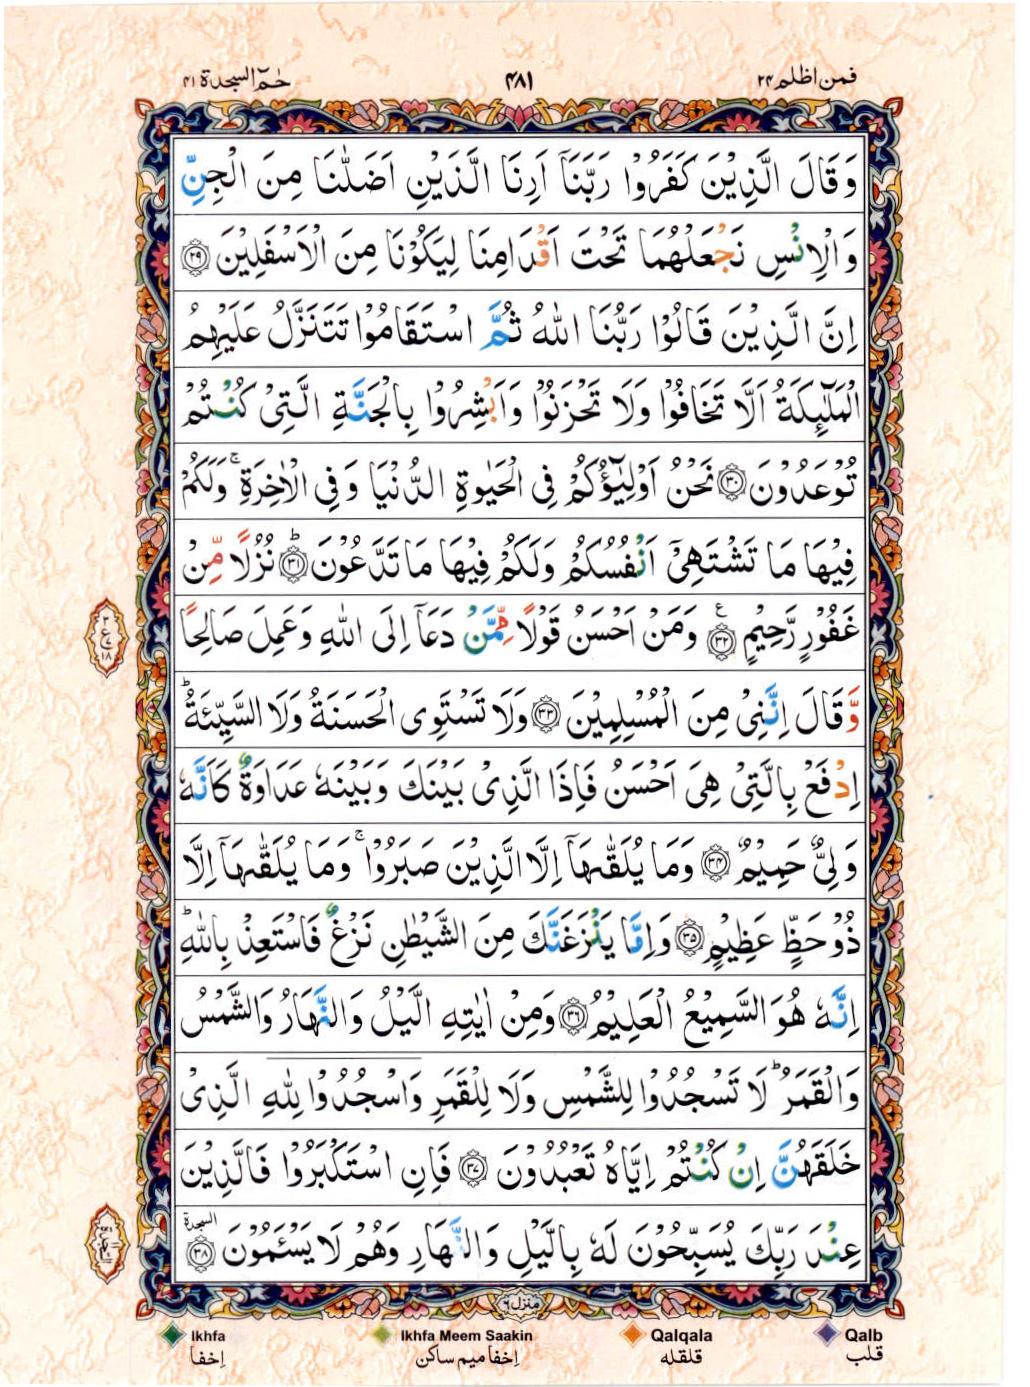 فمن اظلم ۲۴
۴۸۱
حٰمٓ السجدۃ ۴۱
وَقَالَ الَّذِيْنَ كَفَرُوْا رَبَّنَاۤ اَرِنَا الَّذَيْنِ اَضَلّٰنَا مِنَ الْجِنِّ
وَالْاِنْسِ نَجْعَلْهُمَا تَحْتَ اَقْدَامِنَا لِيَكُوْنَا مِنَ الْاَسْفَلِيْنَ ۝۲۹
اِنَّ الَّذِيْنَ قَالُوْا رَبُّنَا اللّٰهُ ثُمَّ اسْتَقَامُوْا تَتَنَزَّلُ عَلَيْهِمُ
الْمَلٰٓئِكَةُ اَلَّا تَخَافُوْا وَلَا تَحْزَنُوْا وَاَبْشِرُوْا بِالْجَنَّةِ الَّتِيْ كُنْتُمْ
تُوْعَدُوْنَ ۝۳۰ نَحْنُ اَوْلِيٰٓؤُكُمْ فِي الْحَيٰوةِ الدُّنْيَا وَفِي الْاٰخِرَةِ ۚ وَلَكُمْ
فِيْهَا مَا تَشْتَهِيْۤ اَنْفُسُكُمْ وَلَكُمْ فِيْهَا مَا تَدَّعُوْنَ ۝۳۱ؕ نُزُلًا مِّنْ
غَفُوْرٍ رَّحِيْمٍ ۝۳۲ع وَمَنْ اَحْسَنُ قَوْلًا مِّمَّنْ دَعَاۤ اِلَى اللّٰهِ وَعَمِلَ صَالِحًا
وَّقَالَ اِنَّنِيْ مِنَ الْمُسْلِمِيْنَ ۝۳۳ وَلَا تَسْتَوِي الْحَسَنَةُ وَلَا السَّيِّئَةُ ؕ
اِدْفَعْ بِالَّتِيْ هِيَ اَحْسَنُ فَاِذَا الَّذِيْ بَيْنَكَ وَبَيْنَهٗ عَدَاوَةٌ كَاَنَّهٗ
وَلِيٌّ حَمِيْمٌ ۝۳۴ وَمَا يُلَقّٰىهَاۤ اِلَّا الَّذِيْنَ صَبَرُوْا ۚ وَمَا يُلَقّٰىهَاۤ اِلَّا
ذُوْ حَظٍّ عَظِيْمٍ ۝۳۵ وَاِمَّا يَنْزَغَنَّكَ مِنَ الشَّيْطٰنِ نَزْغٌ فَاسْتَعِذْ بِاللّٰهِ ؕ
اِنَّهٗ هُوَ السَّمِيْعُ الْعَلِيْمُ ۝۳۶ وَمِنْ اٰيٰتِهِ الَّيْلُ وَالنَّهَارُ وَالشَّمْسُ
وَالْقَمَرُ ؕ لَا تَسْجُدُوْا لِلشَّمْسِ وَلَا لِلْقَمَرِ وَاسْجُدُوْا لِلّٰهِ الَّذِيْ
خَلَقَهُنَّ اِنْ كُنْتُمْ اِيَّاهُ تَعْبُدُوْنَ ۝۳۷ فَاِنِ اسْتَكْبَرُوْا فَالَّذِيْنَ
عِنْدَ رَبِّكَ يُسَبِّحُوْنَ لَهٗ بِالَّيْلِ وَالنَّهَارِ وَهُمْ لَا يَسْئَمُوْنَ ۝۳۸ السجدة
ع
۱۸
منزل ۶
Ikhfa Ikhfa Meem Saakin Qalqala Qalb
اِخفا اِخفا میم ساکن قلقله قلب